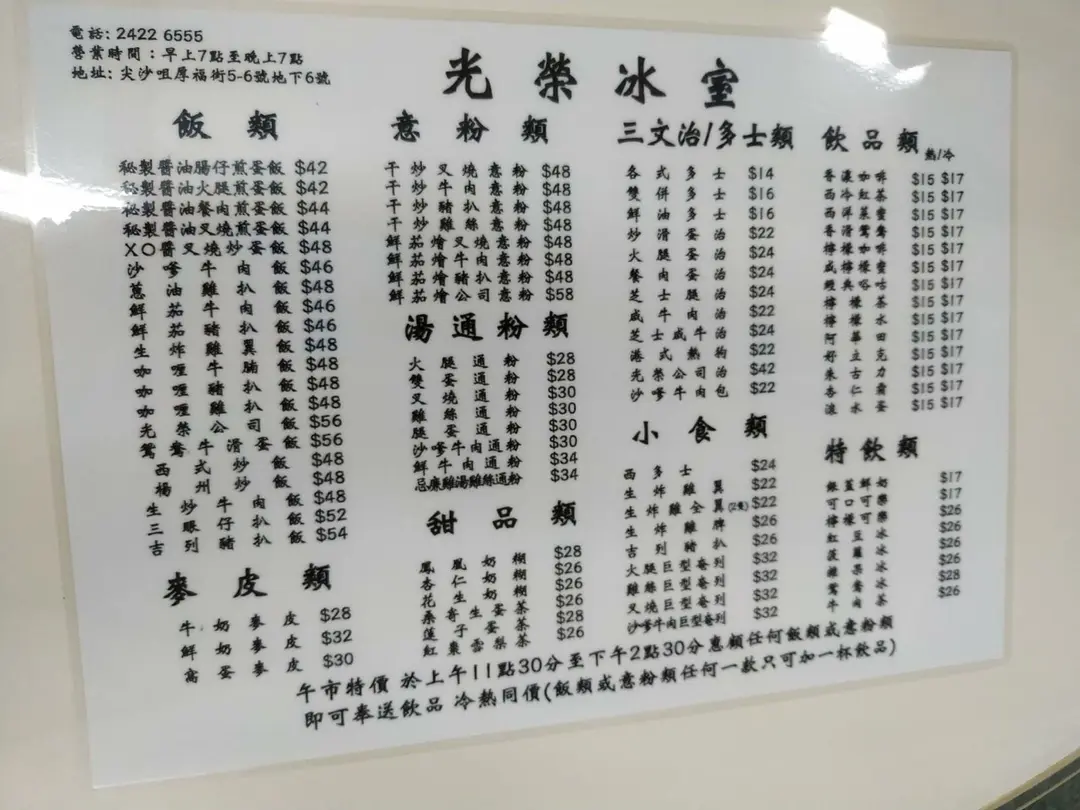 電話: 2422 6555
營業時間：早上7點至晚上7點
地址: 尖沙咀厚福街5-6號地下6號
光榮冰室
飯類
秘製醬油腸仔煎蛋飯 $42
秘製醬油火腿煎蛋飯 $42
秘製醬油餐肉煎蛋飯 $44
秘製醬油叉燒煎蛋飯 $44
XO醬叉燒炒蛋飯 $48
沙嗲牛肉飯 $46
蔥油雞扒飯 $48
鮮茄牛肉飯 $46
鮮茄豬扒飯 $46
生炸雞翼飯 $48
咖喱牛腩飯 $48
咖喱豬扒飯 $48
咖喱雞扒飯 $48
光榮公司飯 $56
鴛鴦牛滑蛋飯 $56
西式炒飯 $48
楊州炒飯 $48
生炒牛肉飯 $48
三眼仔扒飯 $52
吉列豬扒飯 $54
麥皮類
牛奶麥皮 $28
鮮奶麥皮 $32
窩蛋麥皮 $30
意粉類
干炒叉燒意粉 $48
干炒牛肉意粉 $48
干炒豬扒意粉 $48
干炒雞絲意粉 $48
鮮茄燴叉燒意粉 $48
鮮茄燴牛肉意粉 $48
鮮茄燴豬扒意粉 $48
鮮茄燴公司意粉 $58
湯通粉類
火腿通粉 $28
雙蛋通粉 $28
叉燒通粉 $30
雞絲通粉 $30
腿蛋通粉 $30
沙嗲牛肉通粉 $30
鮮牛肉通粉 $34
忌廉雞湯雞絲通粉 $34
甜品類
鳳凰奶糊 $28
杏仁奶糊 $26
花生奶糊 $26
桑寄生蛋茶 $26
蓮子蛋茶 $28
紅棗雪梨茶 $26
三文治/多士類
各式多士 $14
雙併多士 $16
鮮油多士 $16
炒滑蛋治 $22
火腿蛋治 $24
餐肉蛋治 $24
芝士腿治 $24
咸牛肉治 $22
芝士咸牛治 $24
港式熱狗 $22
光榮公司治 $42
沙嗲牛肉包 $22
小食類
西多士 $24
生炸雞翼 $22
生炸雞全翼(2隻) $22
生炸雞脾 $26
吉列豬扒 $26
火腿巨型奄列 $32
雞絲巨型奄列 $32
叉燒巨型奄列 $32
沙嗲牛肉巨型奄列 $32
飲品類 熱/冷
香濃咖啡 $15 $17
西冷紅茶 $15 $17
西洋菜蜜 $15 $17
香滑鴛鴦 $15 $17
檸檬咖啡 $15 $17
咸檸檬蜜 $15 $17
經典唂咕 $15 $17
檸檬茶 $15 $17
檸檬水 $15 $17
阿華田 $15 $17
好立克 $15 $17
朱古力 $15 $17
杏仁霜 $15 $17
滾水蛋 $15 $17
特飲類
鮮奶 $17
可口可樂 $17
檸檬可樂 $26
紅豆冰 $26
菠蘿冰 $26
雜果冰 $26
鴛鴦冰 $28
牛肉茶 $26
午市特價 於上午11點30分至下午2點30分惠顧任何飯類或意粉類
即可奉送飲品 冷熱同價(飯類或意粉類任何一款只可加一杯飲品)